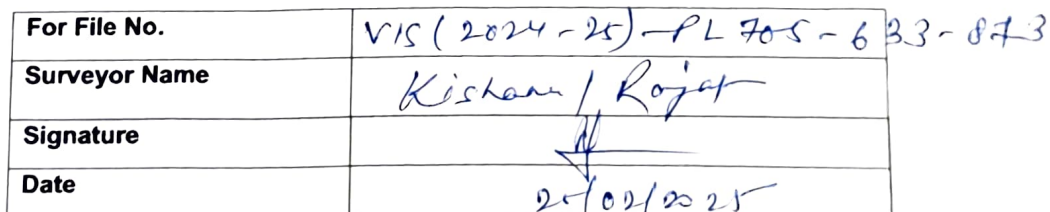 For File No. VIS(2024-25)-PL705-633-873
Surveyor Name Kishanu / Rajat
Signature
Date 25/02/2025